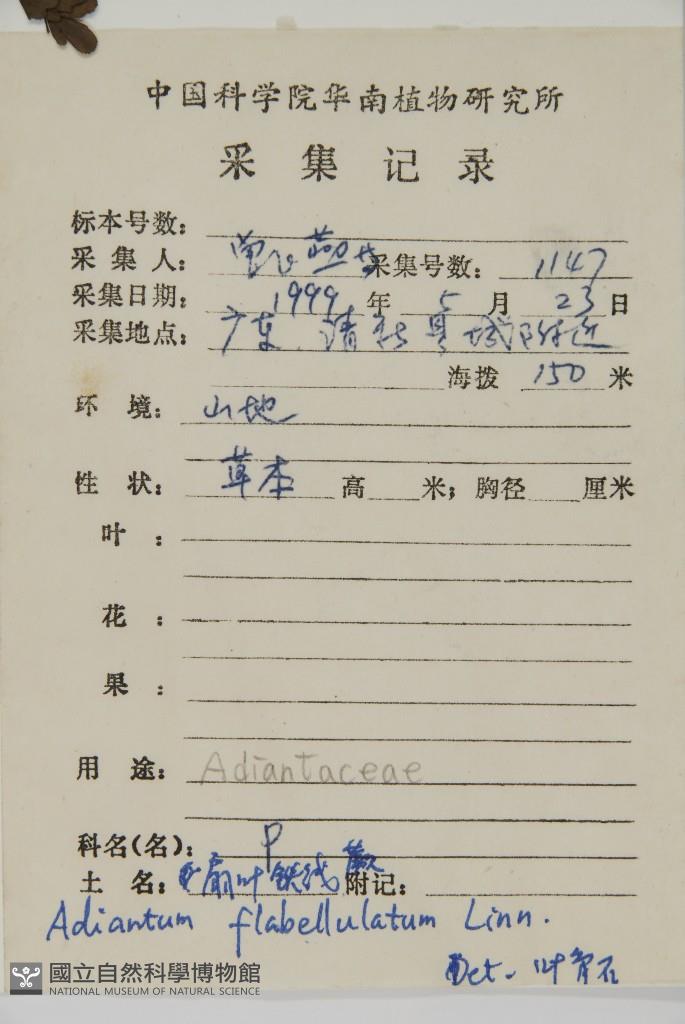 中国科学院华南植物研究所
采集记录
标本号数：
采集人： 曾飞燕等 采集号数： 1147
采集日期： 1999 年 5 月 23 日
采集地点： 广东 清新县城附近
海拨 150 米
环境： 山地
性状： 草本 高 米；胸径 厘米
叶：
花：
果：
用途： Adiantaceae
科名(名)： P
土名： 扇叶铁线蕨 附记：
Adiantum flabellulatum Linn.
Det. 叶育石
國立自然科學博物館
NATIONAL MUSEUM OF NATURAL SCIENCE